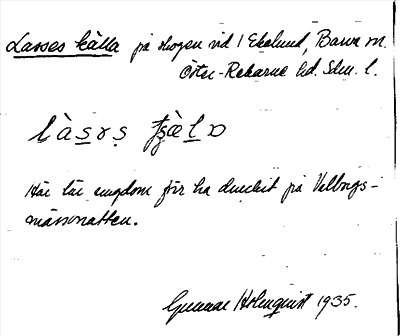 Lasses källa på skogen vid 1 Ekelund, Barva sn.
Öster-Rekarne hd. Sdm. l.
làsɤs ʈʂæ̀lɒ
Här lär ungdom förr ha druckit på Valborgs-
mässonatten.
Gunnar Holmquist 1935.